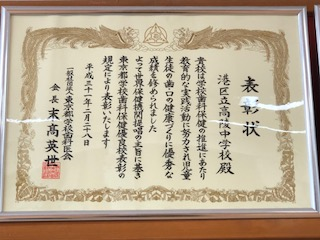 表彰状
港区立高陵中学校殿
貴校は学校歯科保健の推進にあたり
教育的な実践活動に努力され児童
生徒の歯・口の健康づくりに優秀な
成績を修められました
よって世界保健機関提唱の主旨に基き
東京都学校歯科保健優良校表彰の
規定により表彰いたします
平成三十一年二月二十八日
一般社団法人東京都学校歯科医会
会長 末髙英世